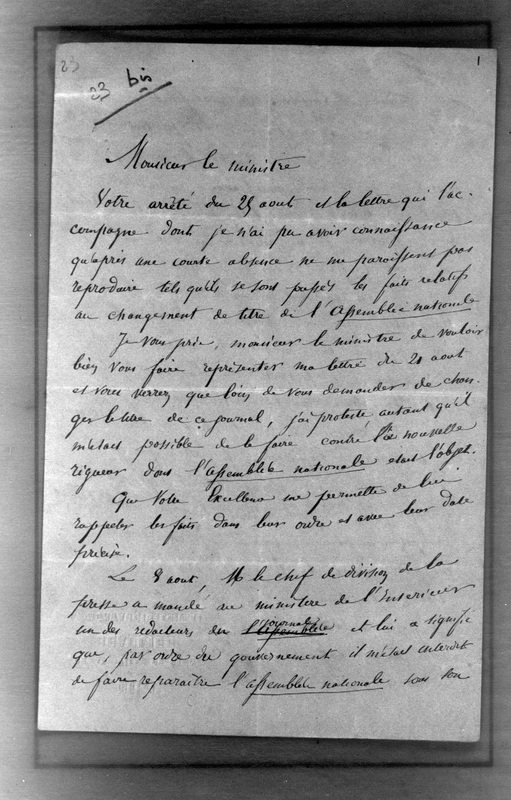 23
23 bis
1
Monsieur le ministre
Votre arrêté du 25 aout et la lettre qui l'ac-
compagne dont je n'ai pu avoir connaissance
qu'après une courte absence ne me paroissent pas
reproduire tels qu'ils se sont passés les faits relatifs
au changement de titre de l'Assemblée nationale
Je vous prie, monsieur le ministre de vouloir
bien vous faire représenter ma lettre du 21 aout
et vous verrez que loin de vous demander de chan-
ger le titre de ce journal, j'ai protesté autant qu'il
m'étais possible de le faire contre la nouvelle
rigueur dont l'assemblée nationale etait l'objet.
Que Votre Excellence me permette de lui
rappeler les faits dans leur ordre et avec leur date
précise.
Le 8 aout, M le chef de division de la
presse a mandé au ministère de l'Interieur
un des rédacteurs du l'Assemblée journal et lui a signifié
que, par ordre du gouvernement il m'étais interdit
de faire reparaitre l'assemblée nationale sous son